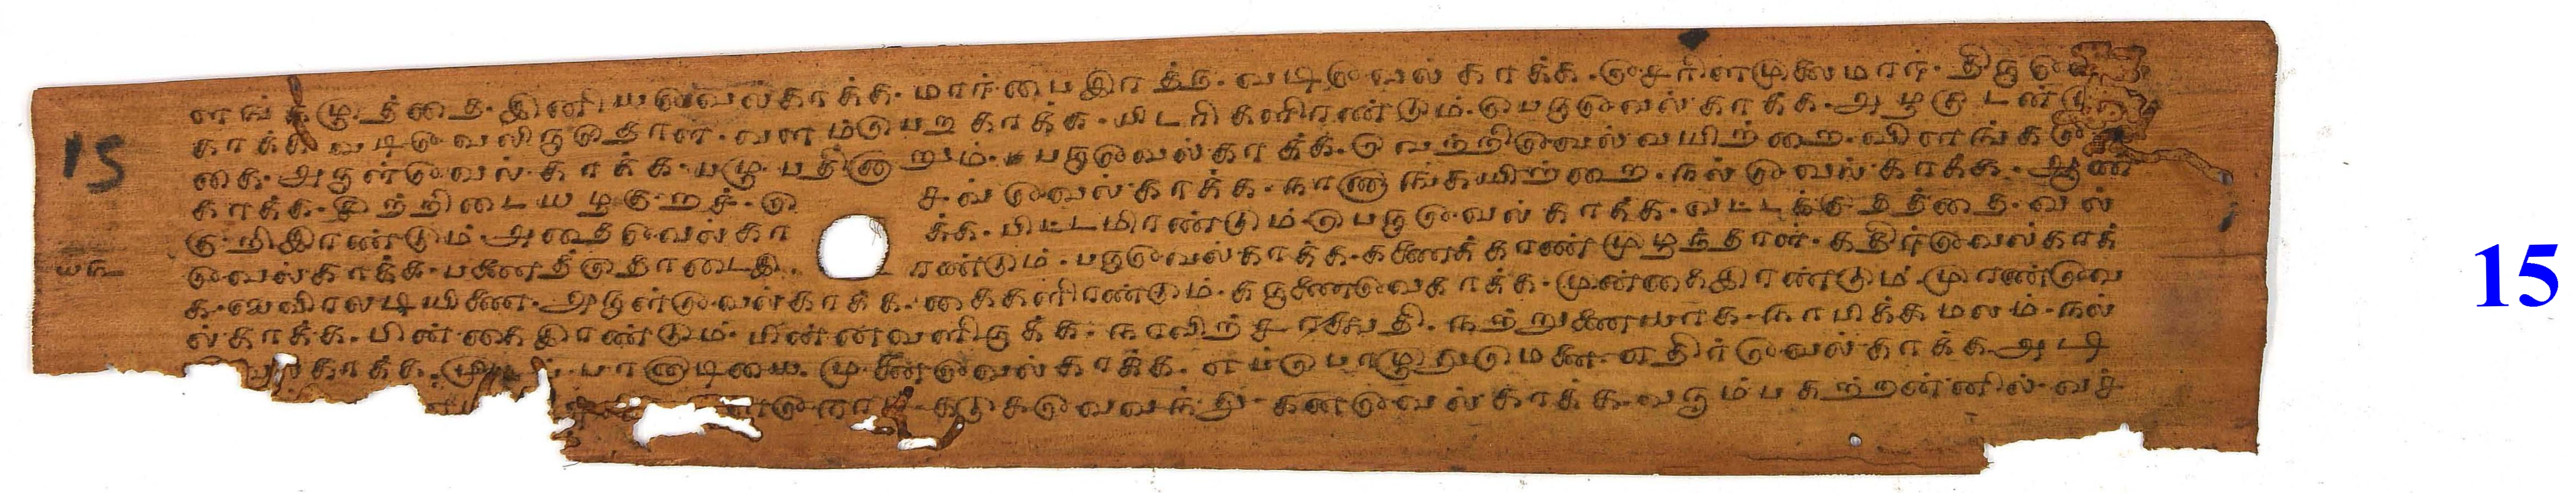 ளங்கழுத்தை இனியவேல்காக்க மார்பை இரத்ந வடிவேல் காக்க சேரிளமுலைமார் திருவே
காக்க வடிவேலிருதோள் வளம்பெற காக்க பிடரிகளிரண்டும் பெருவேல் காக்க அழகுடன்மு
கை அருள்வேல் காக்க பழு பதினாறும் பருவேல்காக்க வெற்றிவேல் வயிற்றை விளங்கவே
காக்க சிற்றிடையழகுறச் செவ்வேல்காக்க நாணாங்கயிற்றை நல்வேல் காக்க ஆண்
குறிஇரண்டும் அவைவேல்காக்க பிட்டமிரண்டும் பெருவேல் காக்க வட்டக்குதத்தை வல்
வேல்காக்க பணைத்தொடைஇரண்டும் பருவேல்காக்க கணைக்கால் முழந்தாள் கதிர்வேல்காக்
க ஐவிரலடியிணை அருள்வேல்காக்க கைகளிரண்டும் கருணைவேகாக்க முன்கைஇரண்டும் முரண்வே
ல்காக்க பின்கை இரண்டும் பின்னவளிருக்க நாவிற் சரசுபதி நற்றுணையாக நாபிக்கமலம் நல்
காக்க பாநாடியை முனைவேல் காக்க எப்பொழுதுமெனை எதிர்வேல் காக்க அடி
கடுகவேவந்து கனகவேல் காக்க வரும்பகற்றன்னில் வச்
15
15